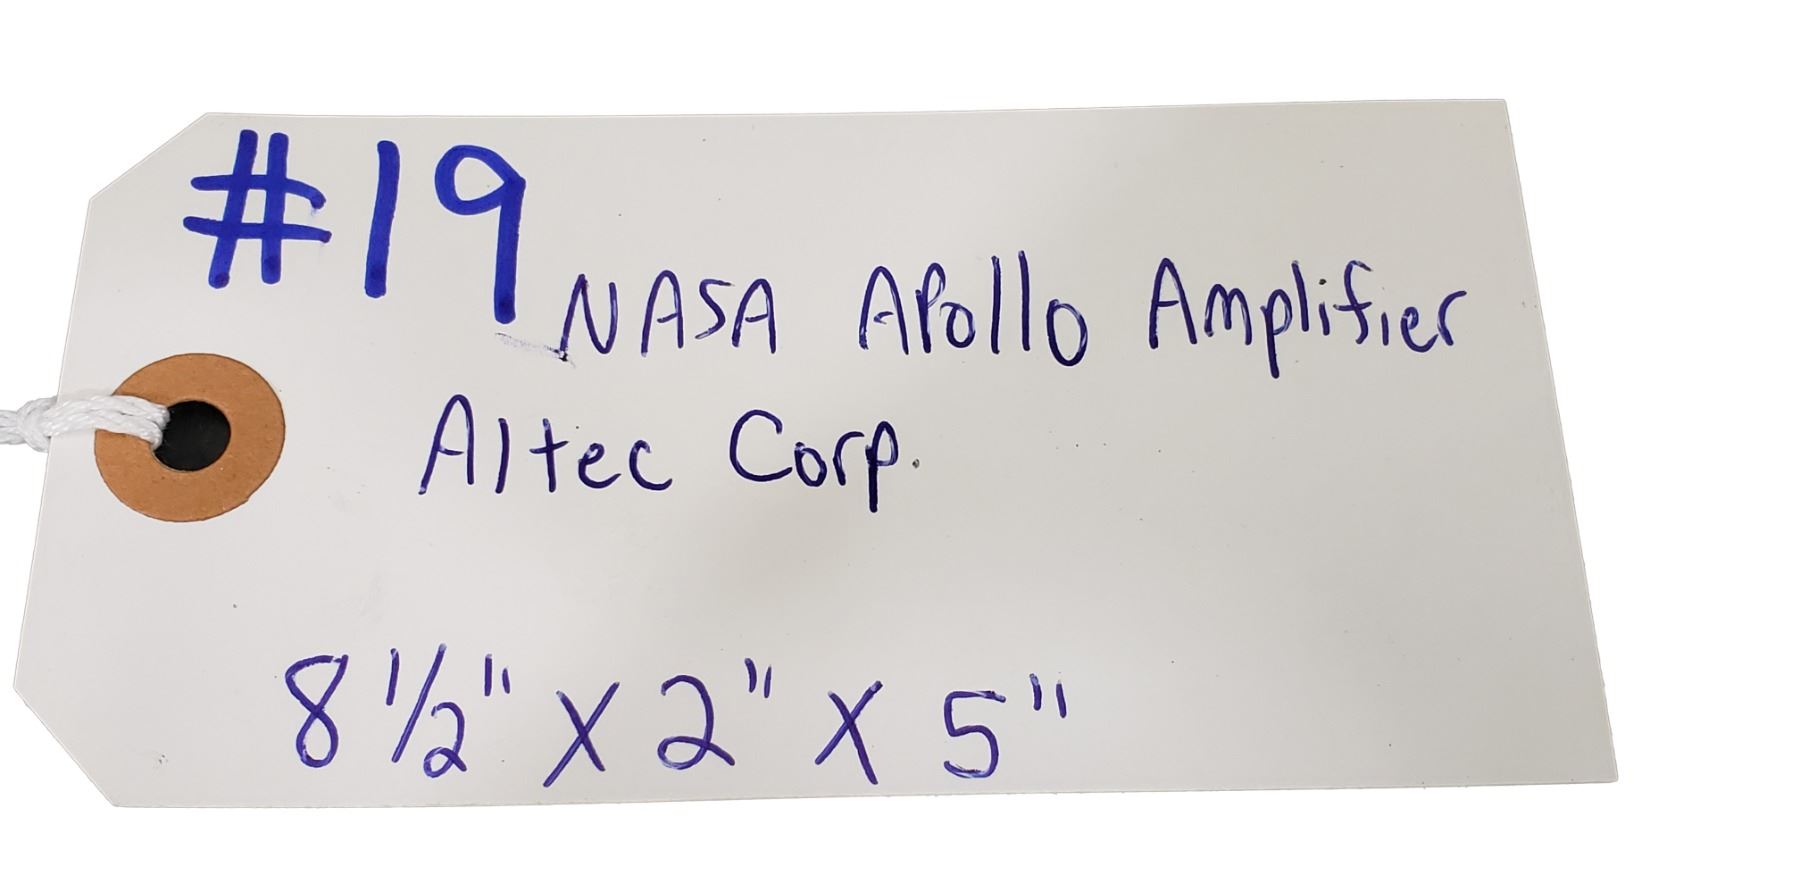 #19
NASA Apollo Amplifier
Altec Corp.
8 1/2" X 2" X 5"